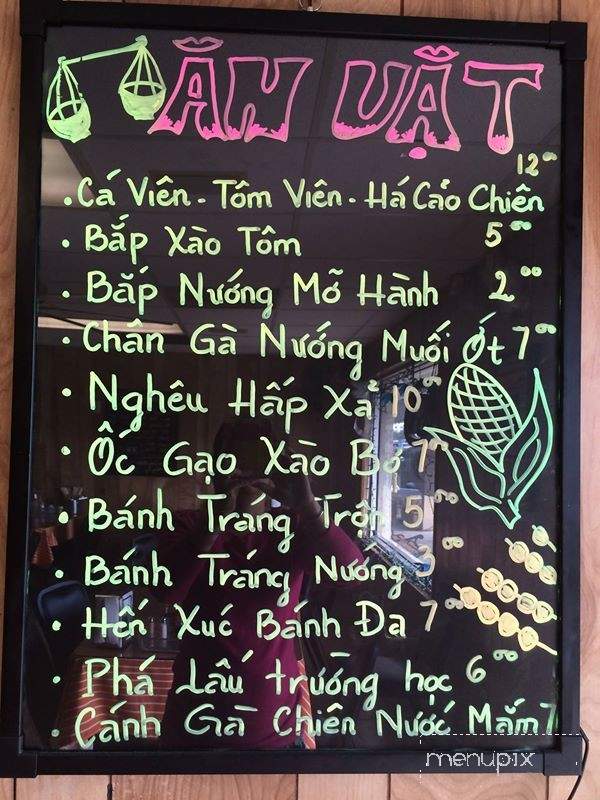 ĂN VẶT
12.00
• Cá Viên - Tôm Viên - Há Cảo Chiên
• Bắp Xào Tôm 5.00
• Bắp Nướng Mỡ Hành 2.00
• Chân Gà Nướng Muối Ớt 7.00
• Nghêu Hấp Xả 10.00
• Ốc Gạo Xào Bơ 7.00
• Bánh Tráng Trộn 5.00
• Bánh Tráng Nướng 3.00
• Hến Xuc Bánh Đa 7.00
• Phá Lấu trường học 6.00
• Cánh Gà Chiên Nước Mắm 7
menupix